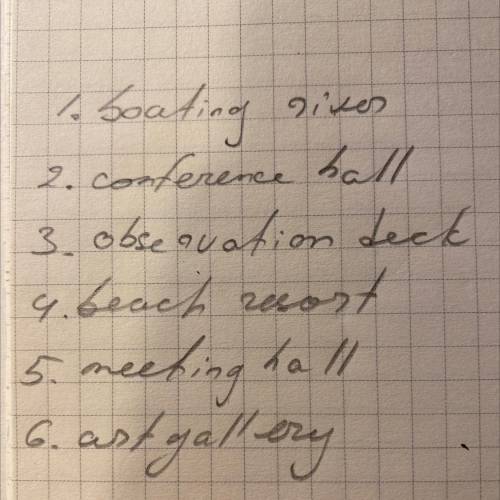 1. boating river
2. conference hall
3. observation deck
4. beach resort
5. meeting hall
6. art gallery